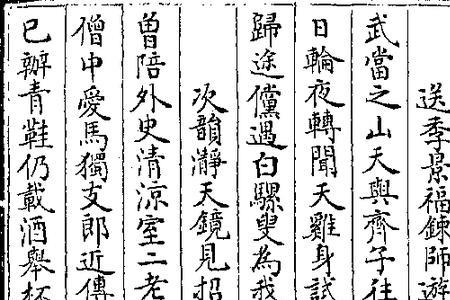 送季景福鍊師遊
武當之山天與齊子往
日輪夜轉聞天雞身試
歸途儻遇白騾叟為我
次韻瀞天鏡見招
曽陪外史清涼室二老
僧中愛馬獨支郎近傳
已辦青鞋仍載酒舉杯